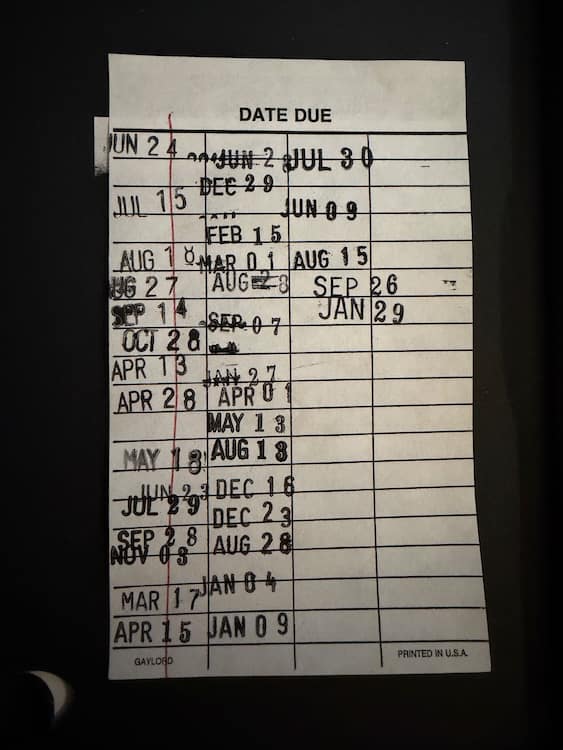 DATE DUE
JUN 24
JUL 15
AUG 18
AUG 27
SEP 14
OCT 28
APR 13
APR 28
MAY 18
JUN 23
JUL 29
SEP 28
NOV 03
MAR 17
APR 15
JUN 2
DEC 29
FEB 15
MAR 01
AUG 28
SEP 07
JAN 27
APR 01
MAY 13
AUG 13
DEC 16
DEC 23
AUG 28
JAN 04
JAN 09
JUL 30
JUN 09
AUG 15
SEP 26
JAN 29
GAYLORD
PRINTED IN U.S.A.